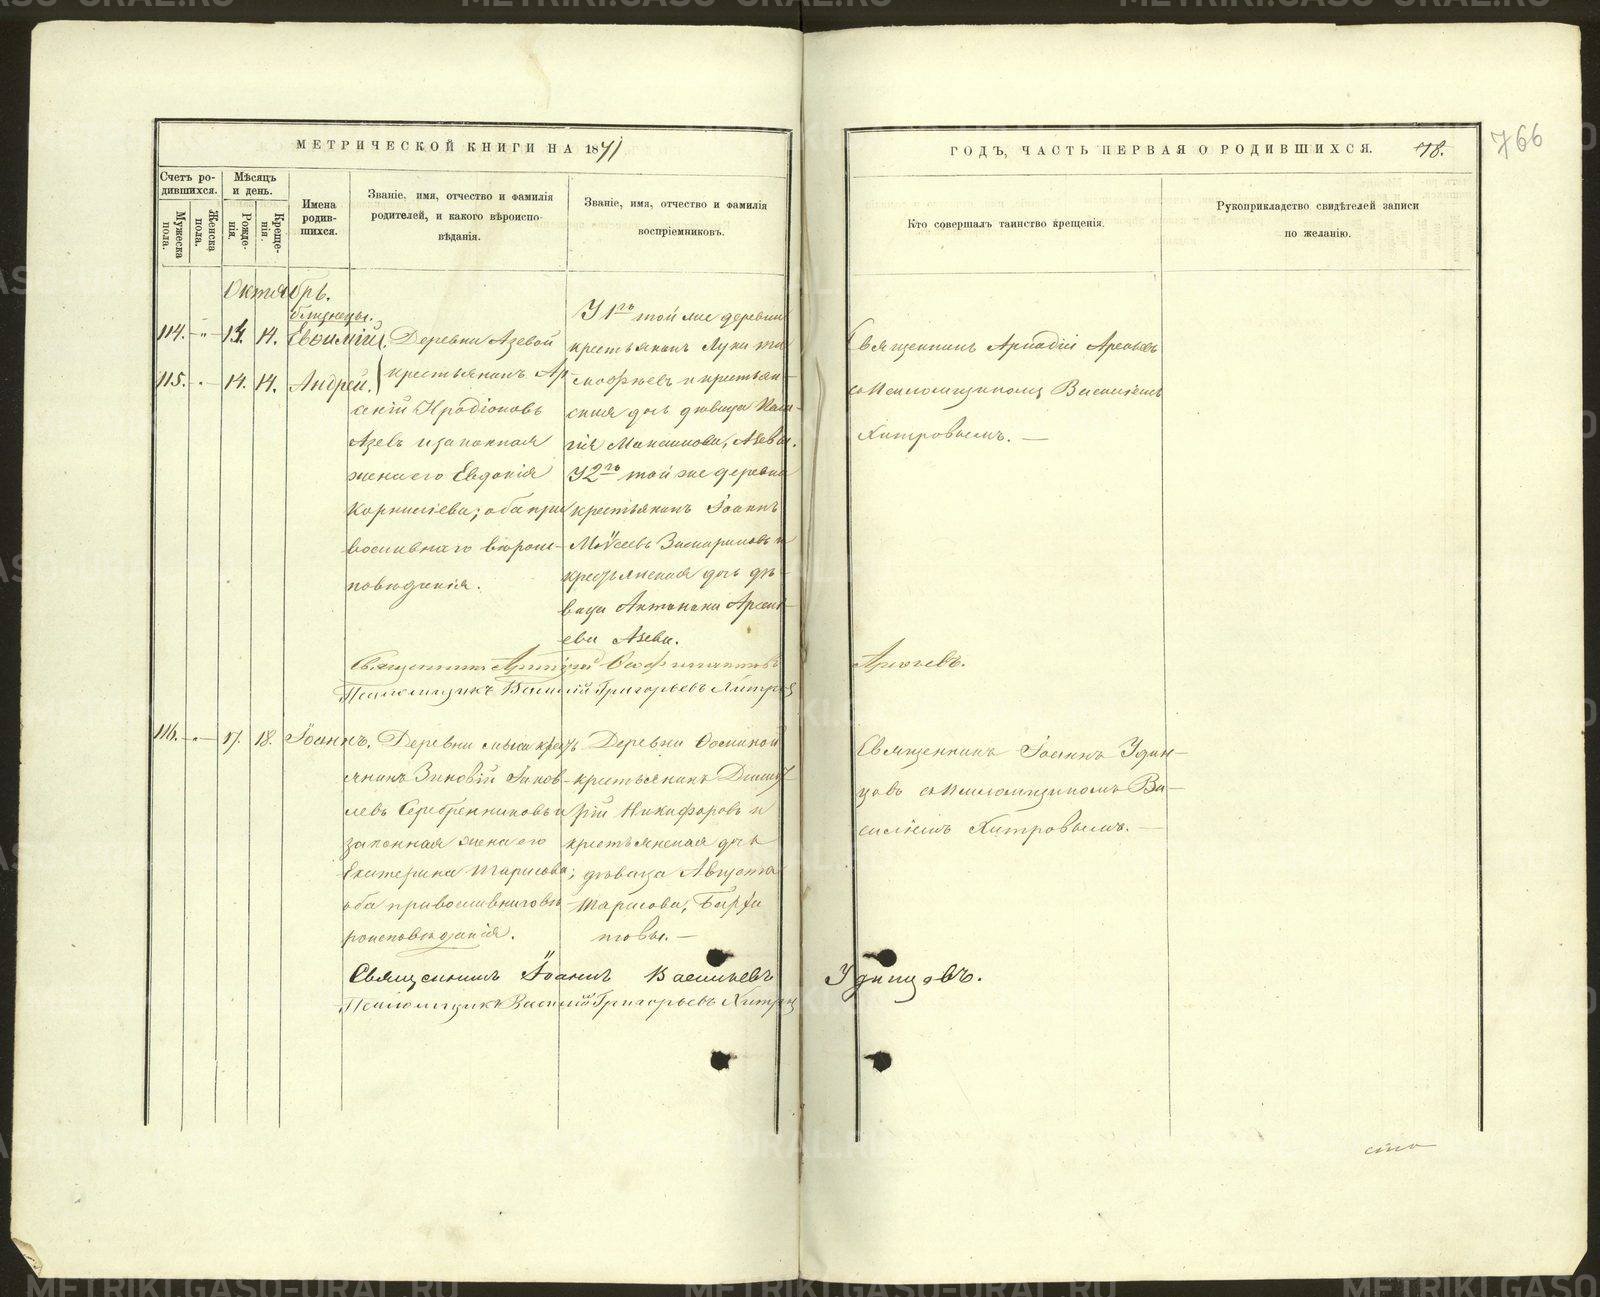 МЕТРИЧЕСКОЙ КНИГИ НА 1871
ГОДЪ, ЧАСТЬ ПЕРВАЯ О РОДИВШИХСЯ.
78.
766
Счетъ ро-
дившихся.
Мужеска
пола.
Женска
пола.
Мѣсяцъ
и день.
Рожде-
нія.
Креще-
нія.
Имена
родив-
шихся.
Званіе, имя, отчество и фамилія
родителей, и какого вѣроиспо-
вѣданія.
Званіе, имя, отчество и фамилія
воспріемниковъ.
Кто совершалъ таинство крещенія.
Рукоприкладство свидѣтелей записи
по желанію.
Октябрь.
близнецы.
114. - " - 14. 14. Евѳимій,
115. " - 14. 14. Андрей.
Деревни Азевой
крестьянинъ Ар-
сеній Иродіоновъ
Азевъ и законная
жена его Евдокія
Корниліева; оба пра
вославнаго вѣроис-
повѣданія.
У 1го той же деревни
крестьянинъ Лука
крестьян-
ская дочь дѣвица
Максимова, Азевы.
У 2го той же деревни
крестьянинъ Іоаннъ
Моѵсеевъ и
крестьянская дочь дѣ-
вица Антонина Арсень-
ева Азева.
Священникъ Аркадій
Арефьевъ
со Псаломщикомъ Василіемъ
Хитровымъ. —
Священникъ Аркадій
Псаломщикъ Василій Григорьевъ Хитровъ
116. - " - 17. 18. Іоаннъ.
Деревни Мыса кресть
янинъ Зиновій Іаков-
левъ Серебренниковъ и
законная жена его
Екатерина Тарасова;
оба православнаго вѣ-
роисповѣданія.
Деревни Ѳоминой
крестьянинъ Димит
рій Никифоровъ и
крестьянская дочь
дѣвица Августа
Тарасова,
Священникъ Іоаннъ Удин-
цовъ со Псаломщикомъ Ва-
силіемъ Хитровымъ. —
Священникъ Іоаннъ Васильевъ Удинцовъ.
Псаломщикъ Василій Григорьевъ Хитровъ
METRIKI.GASO-URAL.RU